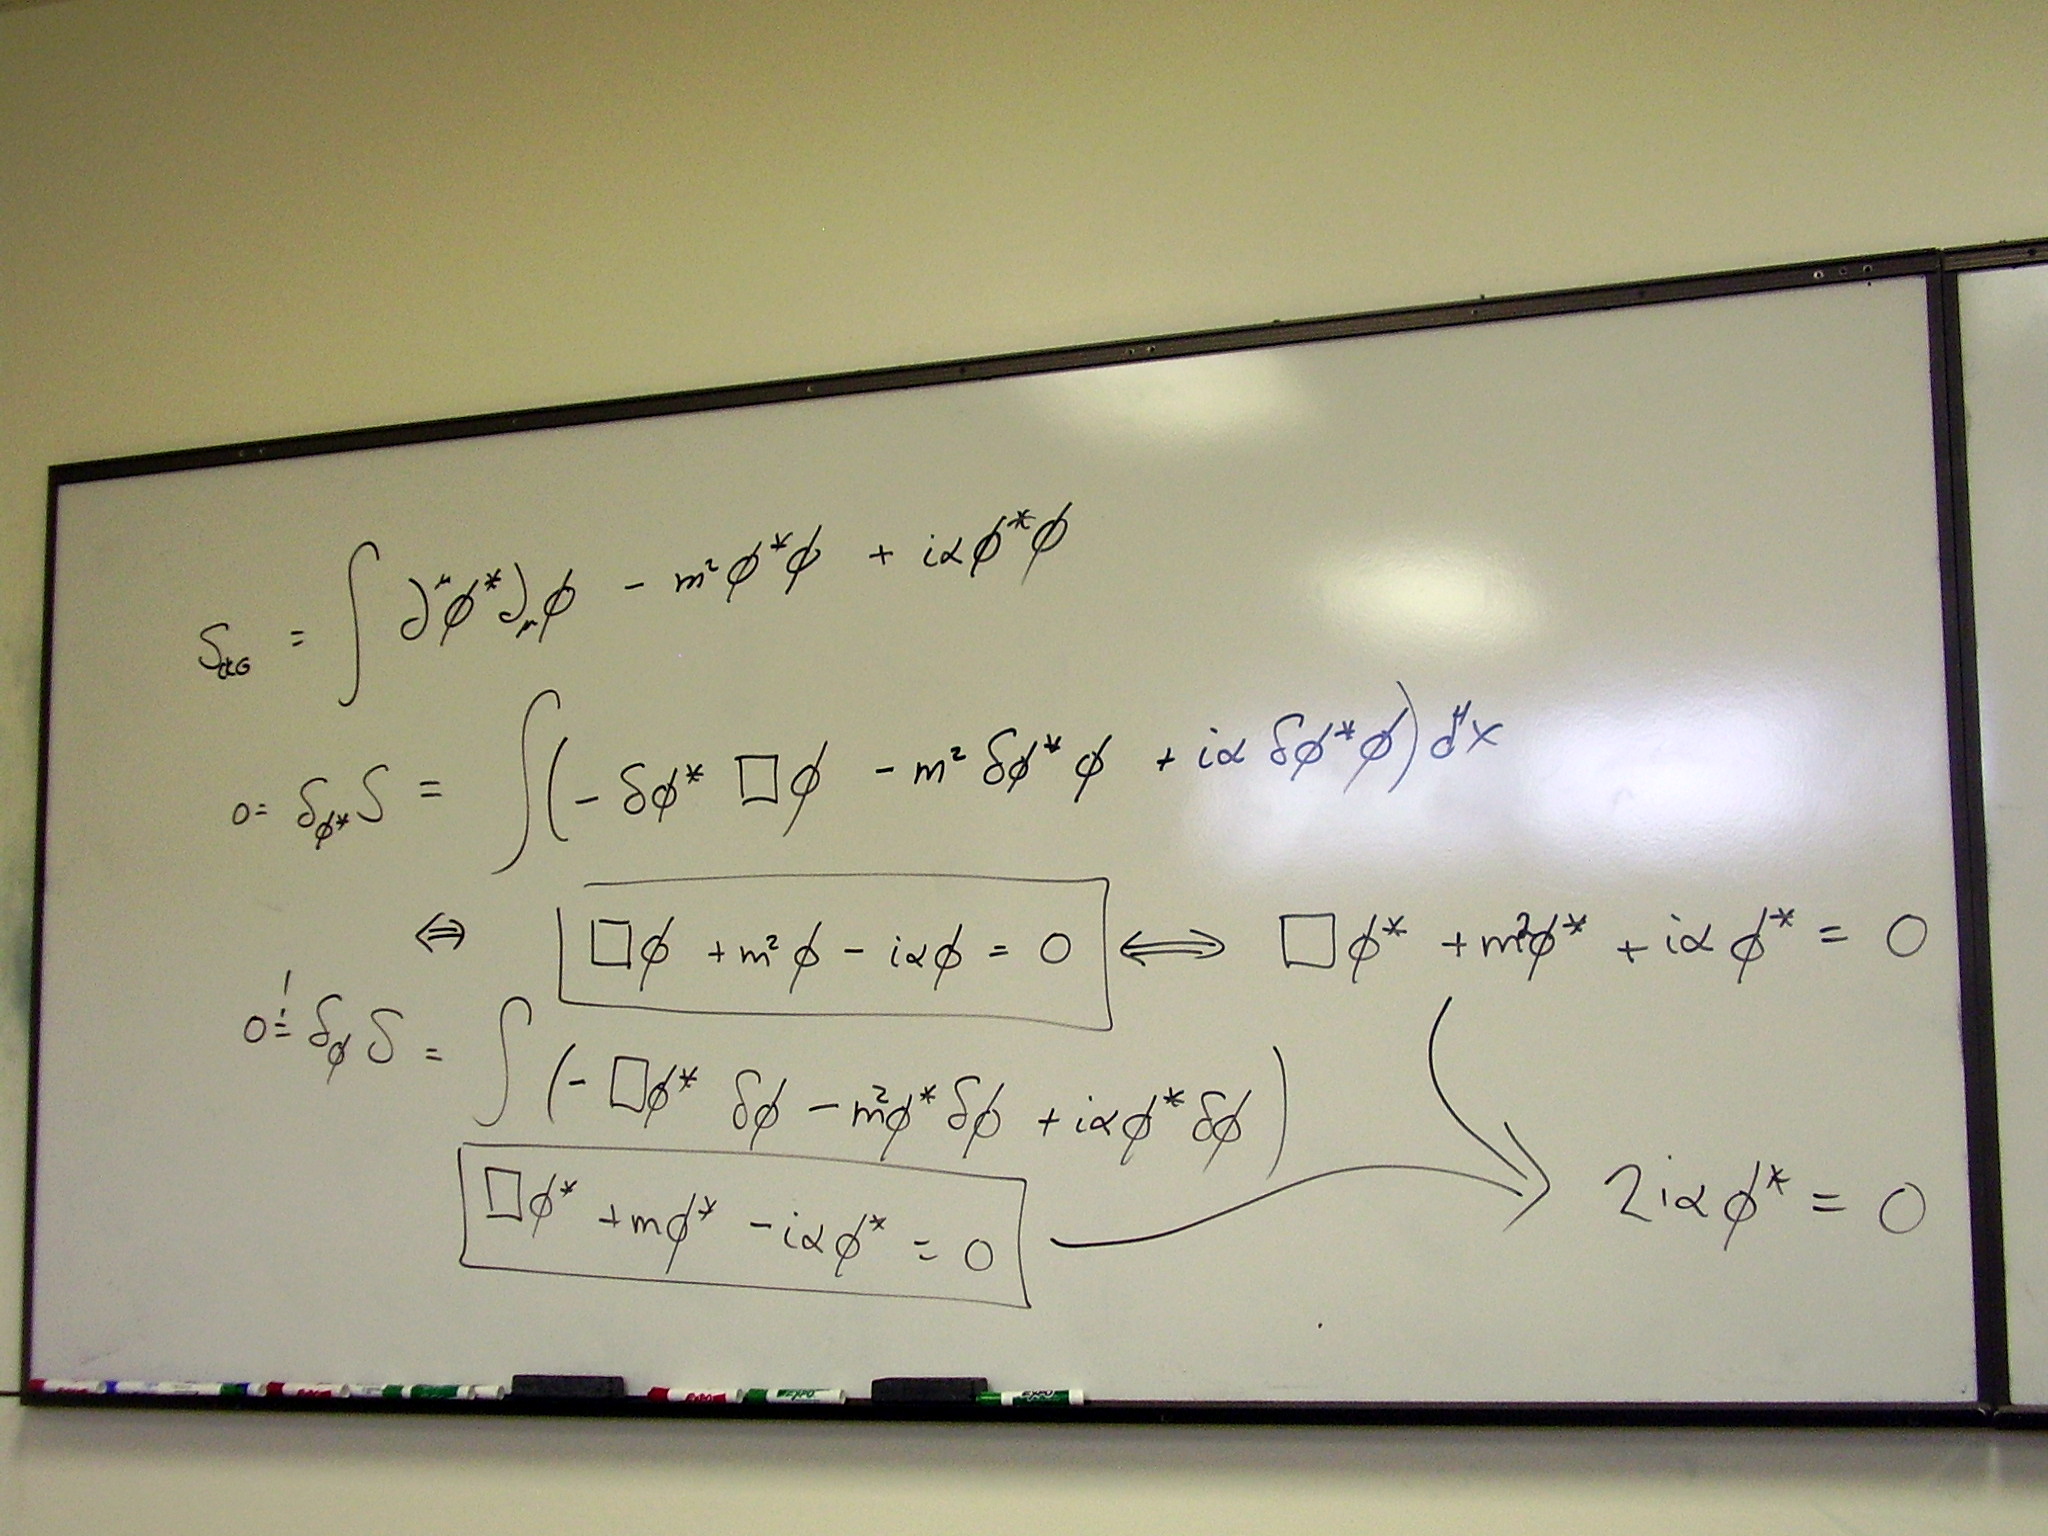 S_KG = ∫ ∂^μ φ* ∂_μ φ - m² φ*φ + iα φ*φ
0 = δ_φ* S = ∫ (- δφ* □φ - m² δφ* φ + iα δφ* φ) d⁴x
⇔ □φ + m² φ - iαφ = 0 ⟺ □φ* + m²φ* + iα φ* = 0
0 =! δ_φ S = ∫ (- □φ* δφ - m²φ* δφ + iαφ* δφ)
□φ* + mφ* - iαφ* = 0
2iαφ* = 0
EXPO